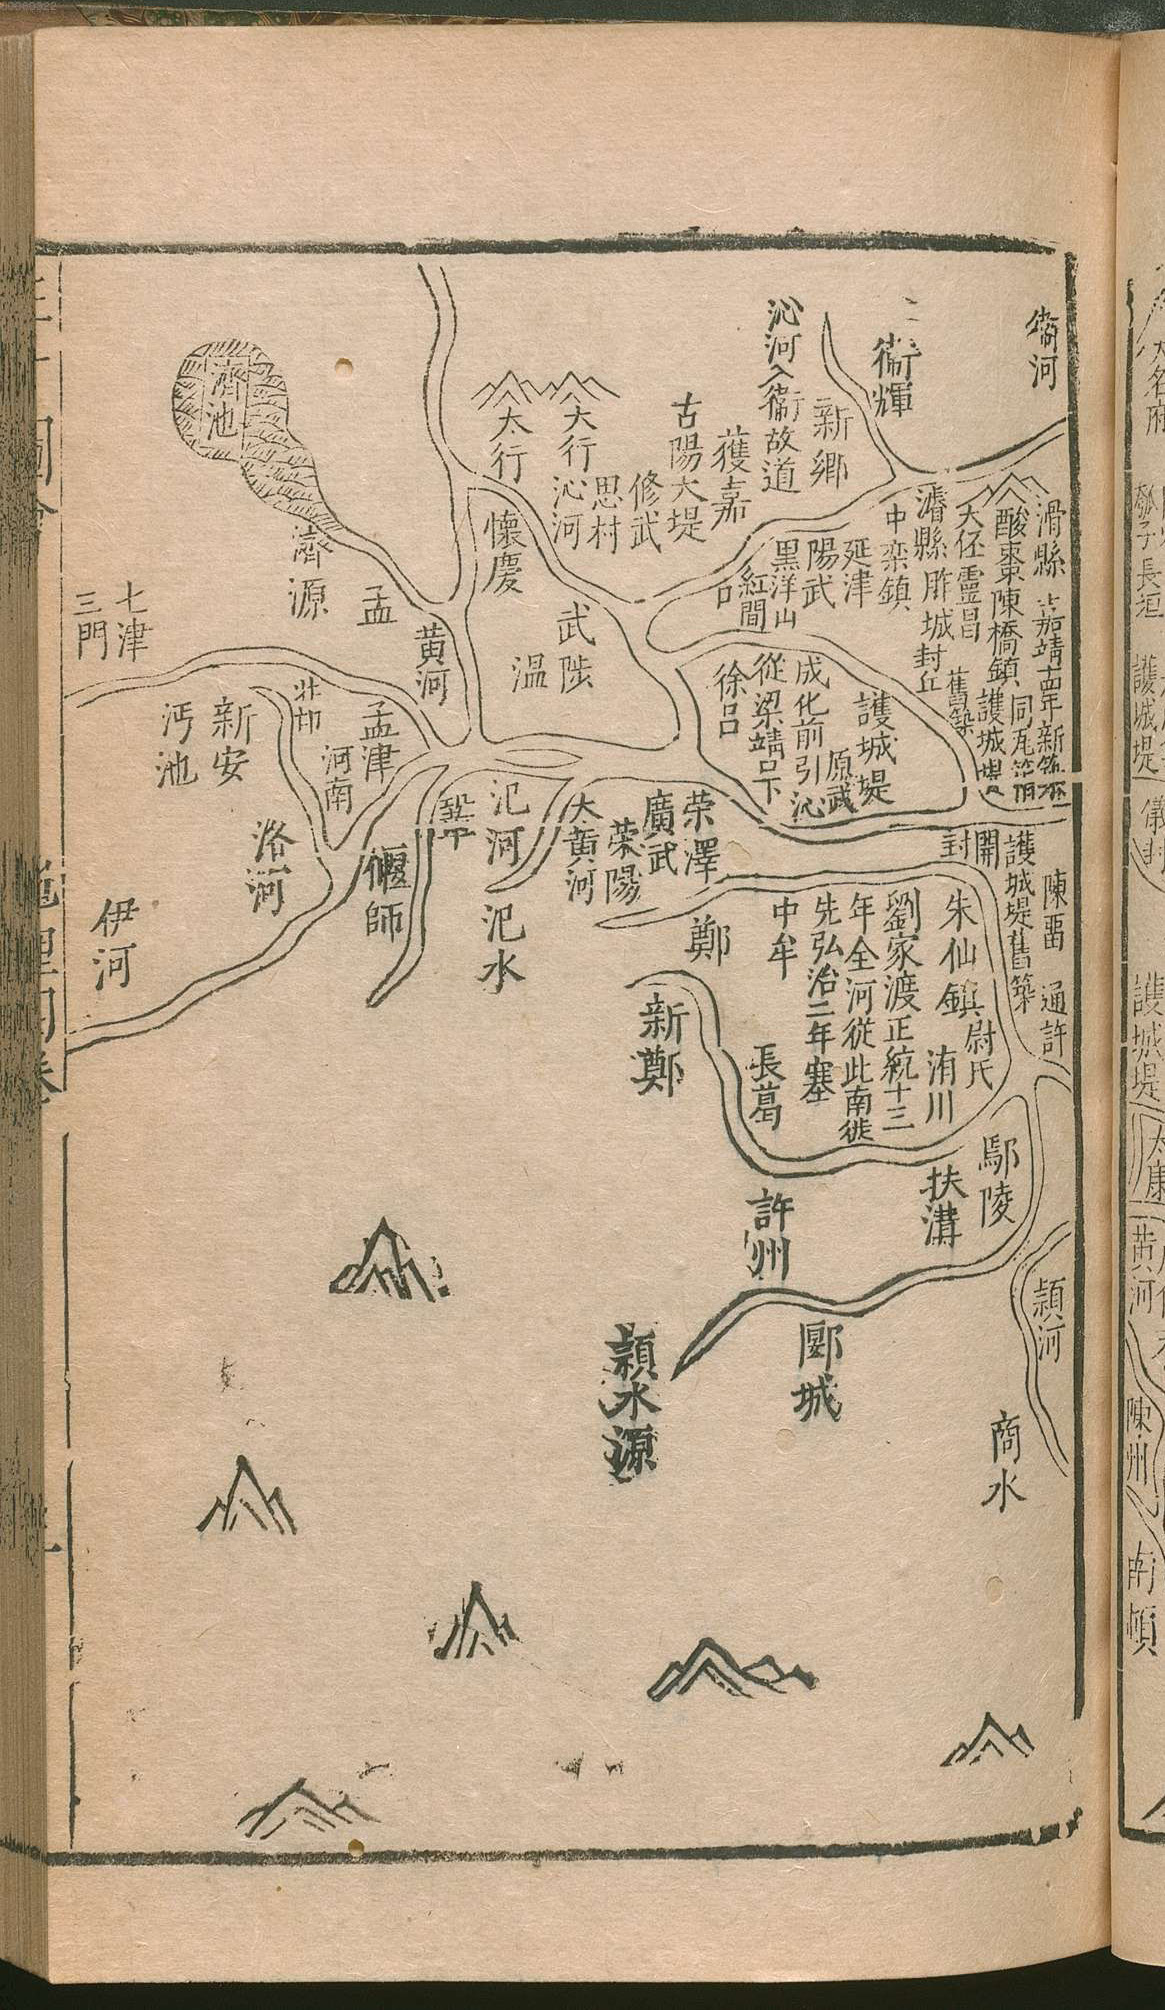 衞河
衞輝
沁河入衞故道
新鄉
獲嘉
古陽大堤
修武
思村
沁河
大行
太行
懷慶
濟池
濟源
孟
黃河
武陟
溫
滑縣
酸棗
陳橋鎮
大伾
靈昌
濬縣
胙城
封丘
中欒鎮
延津
陽武
黑洋山
紅間口
嘉靖
舊築
護城堤
護城堤
原武
成化前引沁
從梁靖口下
徐口
七津
三門
新安
沔池
孟津
河南
洛河
伊河
偃師
汜河
汜水
大黃河
榮澤
廣武
榮陽
鄭
開封
護城堤舊築
陳畱
通許
朱仙鎮
尉氏
洧川
劉家渡正統十三
年全河從此南徙
先弘治二年塞
中牟
長葛
新鄭
鄢陵
扶溝
許州
郾城
潁水源
潁河
商水
大名府
瓠子
長垣
護城堤
儀封
護城堤
太康
黃河
陳州
南頓